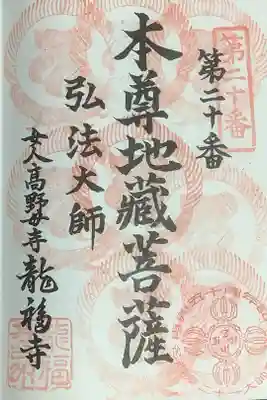 第二十番
第二十番
本尊地藏菩薩
弘法大師
女人高野山寺龍福寺